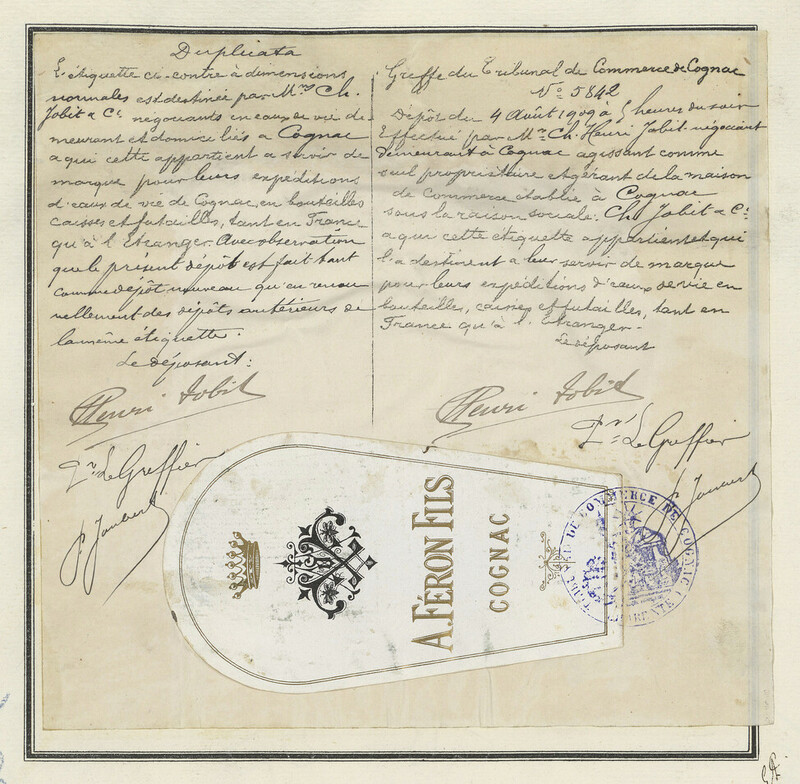 Duplicata
L'étiquette ci-contre à dimensions
normales est destinée par Mrs Ch.
Jobit & Cie négociants en eaux de vie de
meurant et domiciliés à Cognac
a qui cette appartient a servir de
marque pour leurs expéditions
d'eaux de vie de Cognac, en bouteilles
caisses et futailles, tant en France
qu'à l'Etranger. Avec observation
que le présent dépôt est fait tant
comme dépôt nouveau qu'en renou
vellement des dépôts antérieurs de
la même étiquette.
Le déposant:
Henri Jobit
Pr. Le Greffier
P. Joubert
Greffe du Tribunal de Commerce de Cognac
No 5842
Dépôt du 4 Août 1909 à 5 heures du soir
Effectué par Mr. Ch. Henri Jobit négociant
demeurant à Cognac agissant comme
seul propriétaire et gérant de la maison
de Commerce établie à Cognac
sous la raison sociale: Ch. Jobit & Cie
a qui cette étiquette appartient et qui
l'a destinent a leur servir de marque
pour leurs expéditions d'eaux de vie en
bouteilles, caisses et futailles, tant en
France qu'à l'Etranger.
Le déposant
Henri Jobit
Pr. Le Greffier
P. Joubert
A. FÉRON FILS
COGNAC
DE COMMERCE DE COGNAC